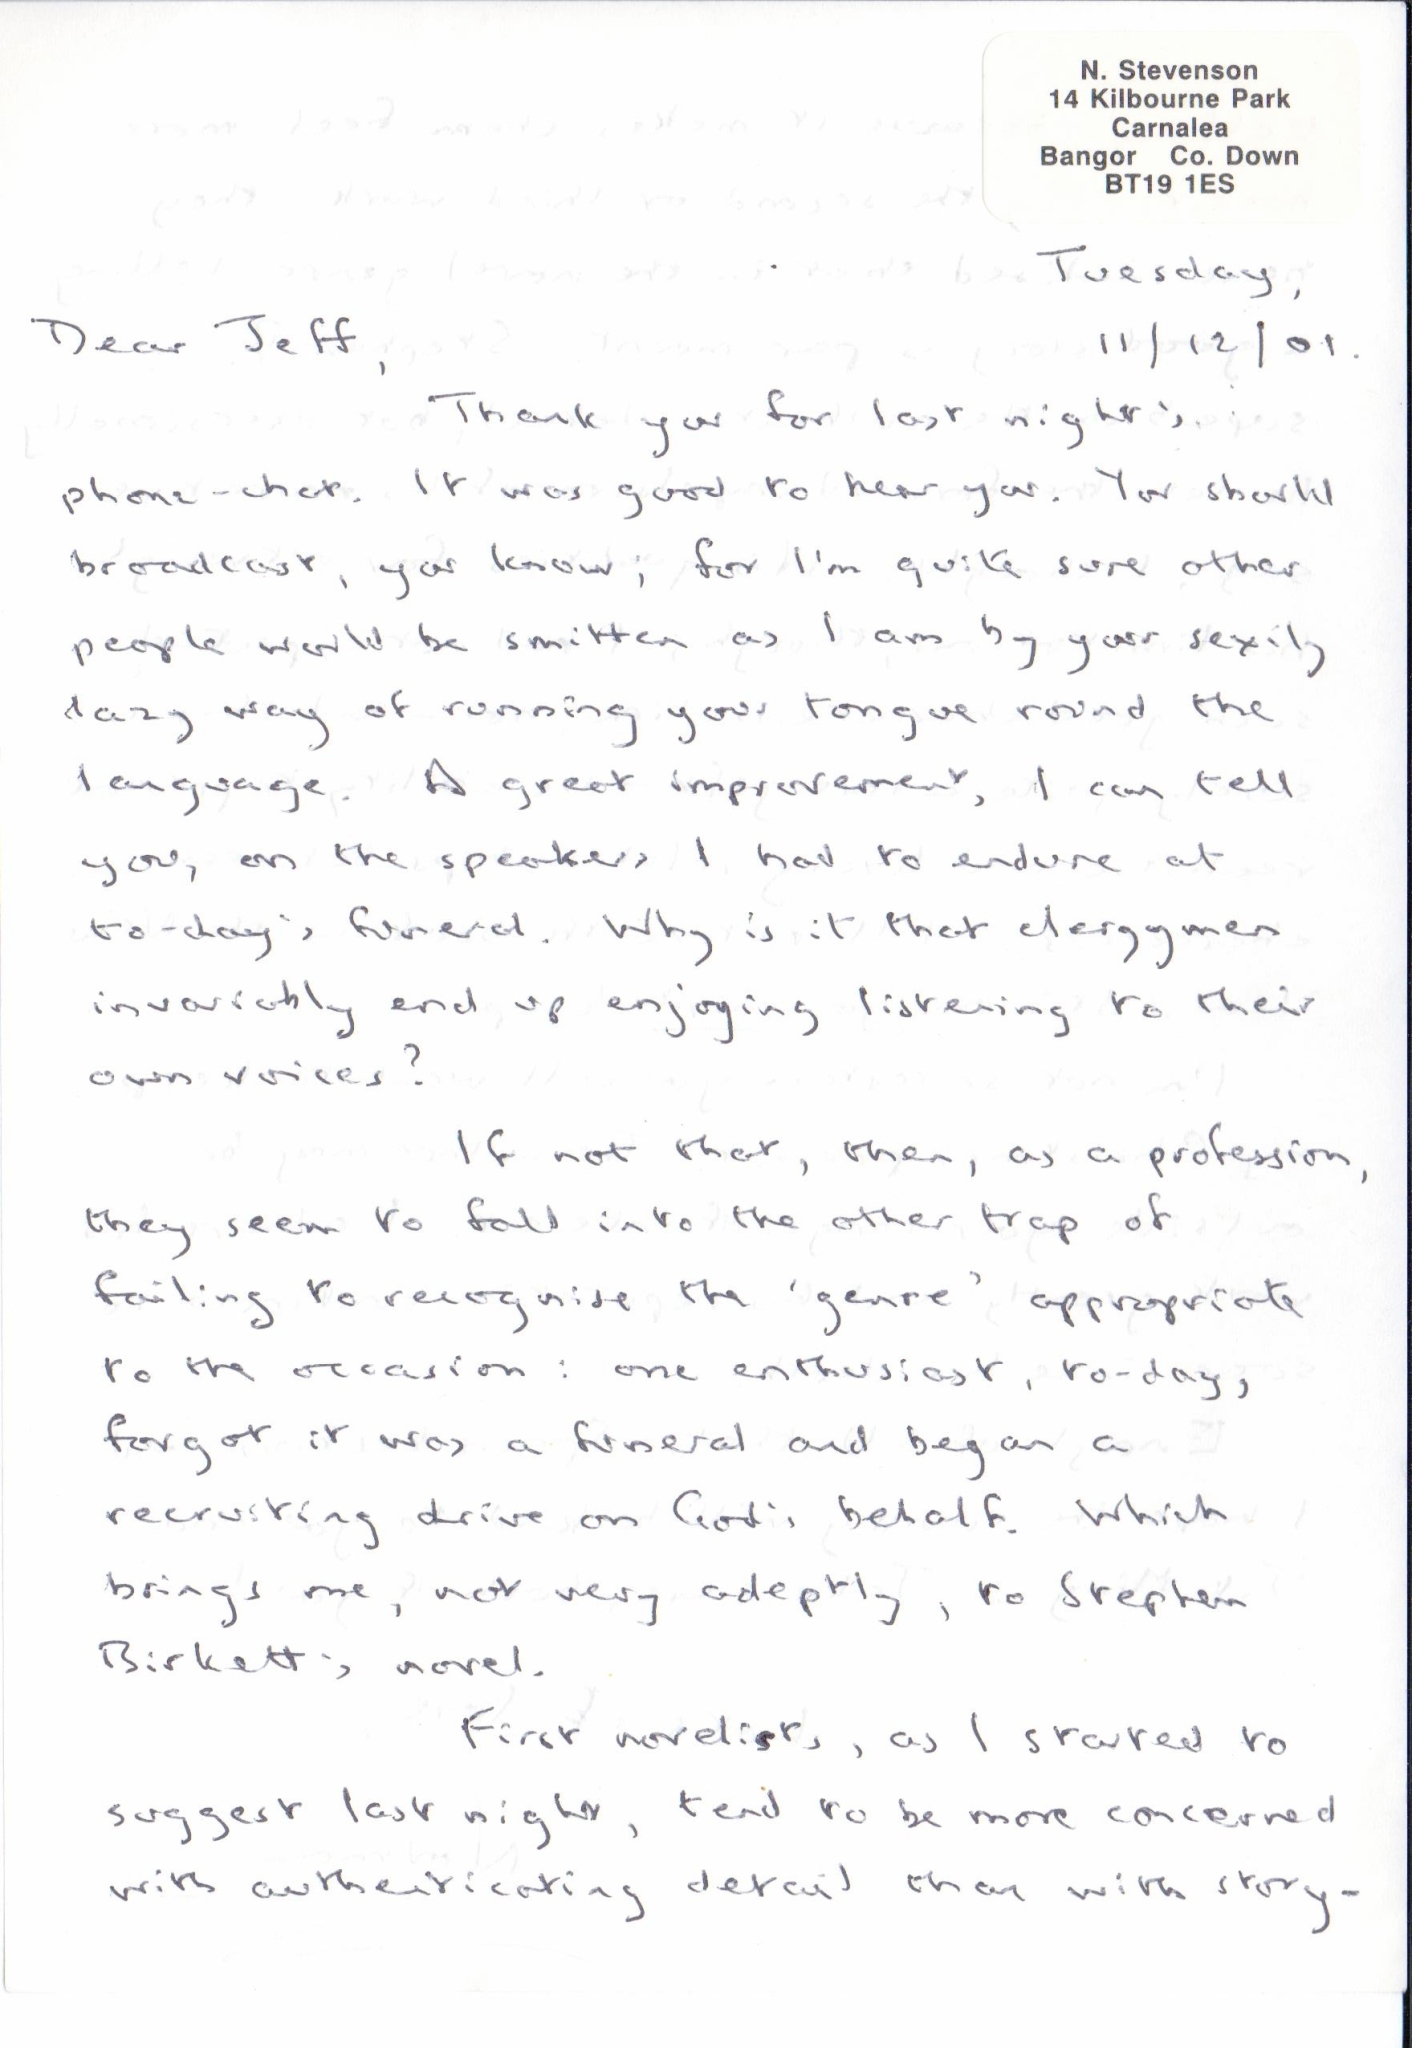 N. Stevenson
14 Kilbourne Park
Carnalea
Bangor Co. Down
BT19 1ES
Tuesday,
Dear Jeff, 11/12/01.
Thank you for last night's
phone-chat. It was good to hear you. You should
broadcast, you know; for I'm quite sure other
people would be smitten as I am by your sexily
lazy way of running your tongue round the
language. A great improvement, I can tell
you, on the speakers I had to endure at
to-day's funeral. Why is it that clergymen
invariably end up enjoying listening to their
own voices?
If not that, then, as a profession,
they seem to fall into the other trap of
failing to recognise the 'genre' appropriate
to the occasion: one enthusiast, to-day,
forgot it was a funeral and began a
recruiting drive on God's behalf. Which
brings me, not very adeptly, to Stephen
Birkett's novel.
First novelists, as I started to
suggest last night, tend to be more concerned
with authenticating detail than with story-